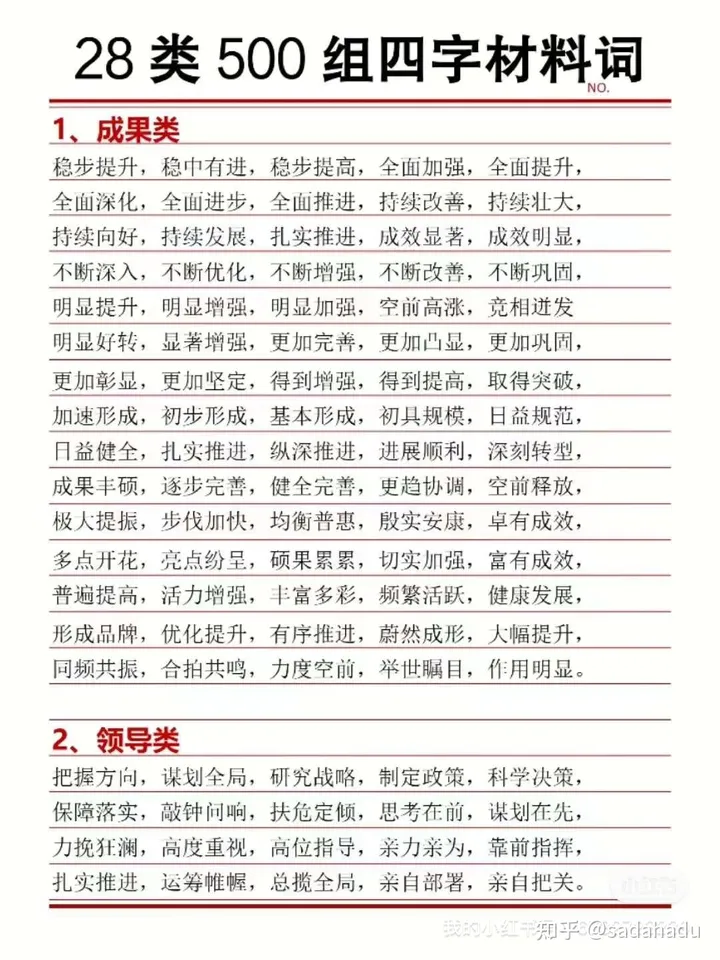 28 类 500 组四字材料词
NO.
1、成果类
稳步提升，稳中有进，稳步提高，全面加强，全面提升，
全面深化，全面进步，全面推进，持续改善，持续壮大，
持续向好，持续发展，扎实推进，成效显著，成效明显，
不断深入，不断优化，不断增强，不断改善，不断巩固，
明显提升，明显增强，明显加强，空前高涨，竞相迸发
明显好转，显著增强，更加完善，更加凸显，更加巩固，
更加彰显，更加坚定，得到增强，得到提高，取得突破，
加速形成，初步形成，基本形成，初具规模，日益规范，
日益健全，扎实推进，纵深推进，进展顺利，深刻转型，
成果丰硕，逐步完善，健全完善，更趋协调，空前释放，
极大提振，步伐加快，均衡普惠，殷实安康，卓有成效，
多点开花，亮点纷呈，硕果累累，切实加强，富有成效，
普遍提高，活力增强，丰富多彩，频繁活跃，健康发展，
形成品牌，优化提升，有序推进，蔚然成形，大幅提升，
同频共振，合拍共鸣，力度空前，举世瞩目，作用明显。
2、领导类
把握方向，谋划全局，研究战略，制定政策，科学决策，
保障落实，敲钟问响，扶危定倾，思考在前，谋划在先，
力挽狂澜，高度重视，高位指导，亲力亲为，靠前指挥，
扎实推进，运筹帷幄，总揽全局，亲自部署，亲自把关。
小红书
我的小红书
知乎 @sadahadu